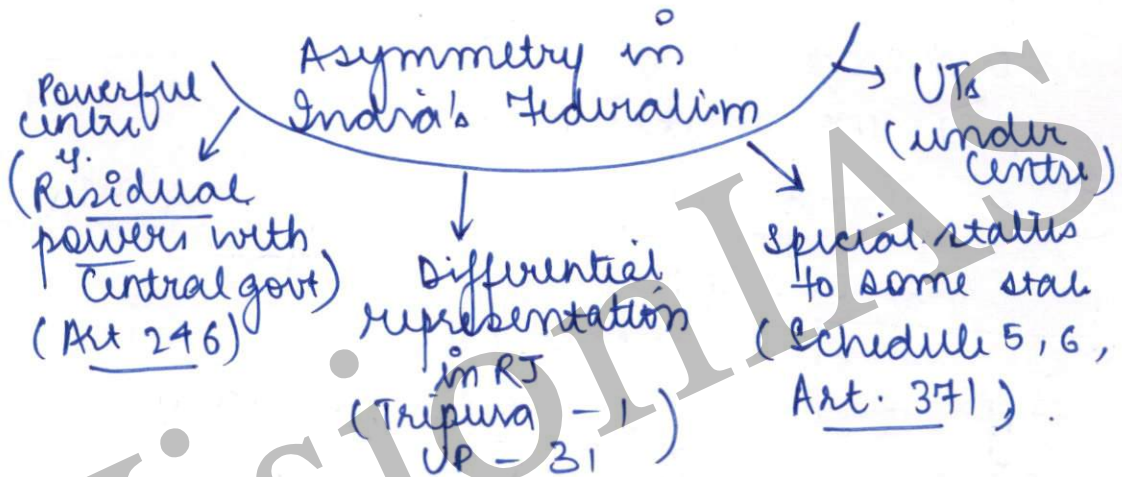 Asymmetry in
India's Federalism
Powerful
centre
(eg.
Residual
powers with
Central govt)
(Art 246)
Differential
representation
in RJ
(Tripura - 1
UP - 31)
Special status
to some stat
(Schedule 5, 6,
Art. 371).
UTs
(under
Centre)
VisionIAS